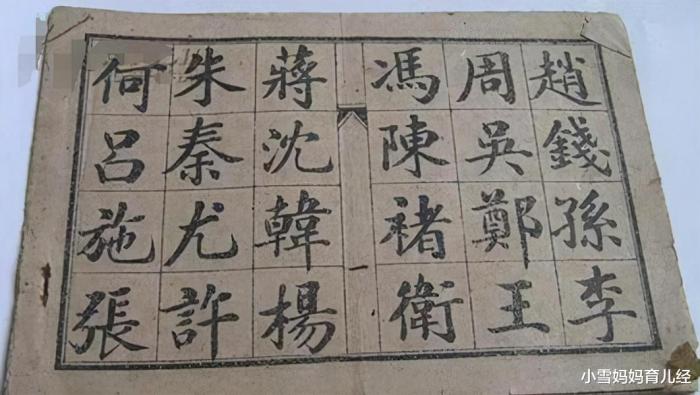 趙錢孫李
周吳鄭王
馮陳褚衛
蔣沈韓楊
朱秦尤許
何呂施張
一
小雪妈妈育儿经